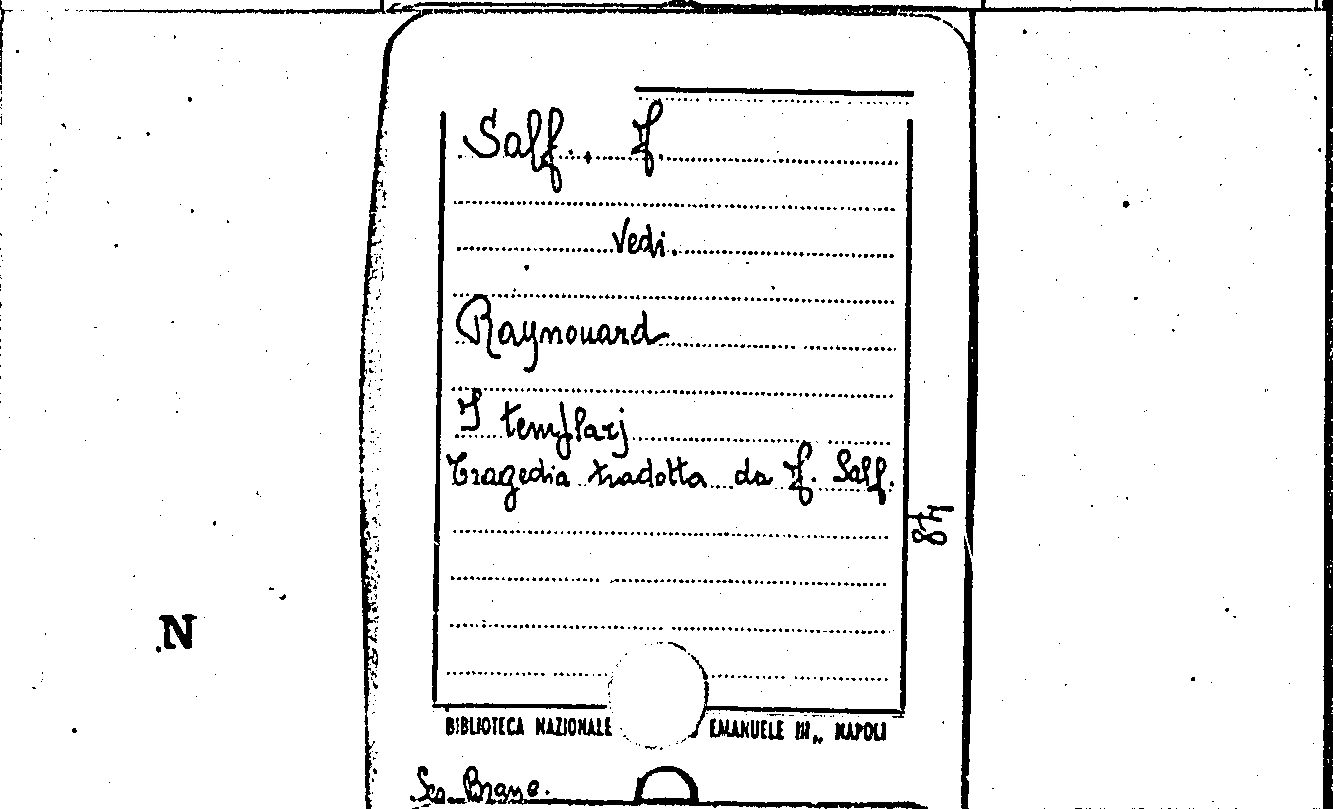 Salf., F.
Vedi.
Raynouard
I templarj
Tragedia tradotta da F. Salf.
48
N
BIBLIOTECA NAZIONALE EMANUELE III„ NAPOLI
Sez. Brano.